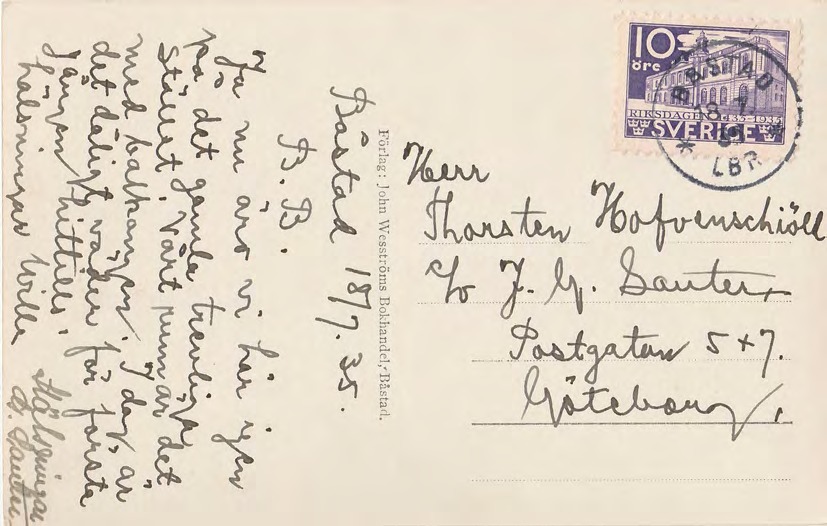 Båstad 18/7. 35.
B. B.
Ja nu äro vi här igen
på det gamla trevliga
stället. Vårt rum är det
med balkongen. I dag är
det dåligt väder för första
gången hittills.
hälsningar Willa
Hälsningar
Förlag: John Wesströms Bokhandel, Båstad.
10
öre
RIKSDAGEN 1435-1935
SVERIGE
BÅSTAD
18 7
35
LBR
Herr
Thorsten Hofvenschiöld
c/o J. G. Sauter
Postgatan 5+7.
Göteborg.